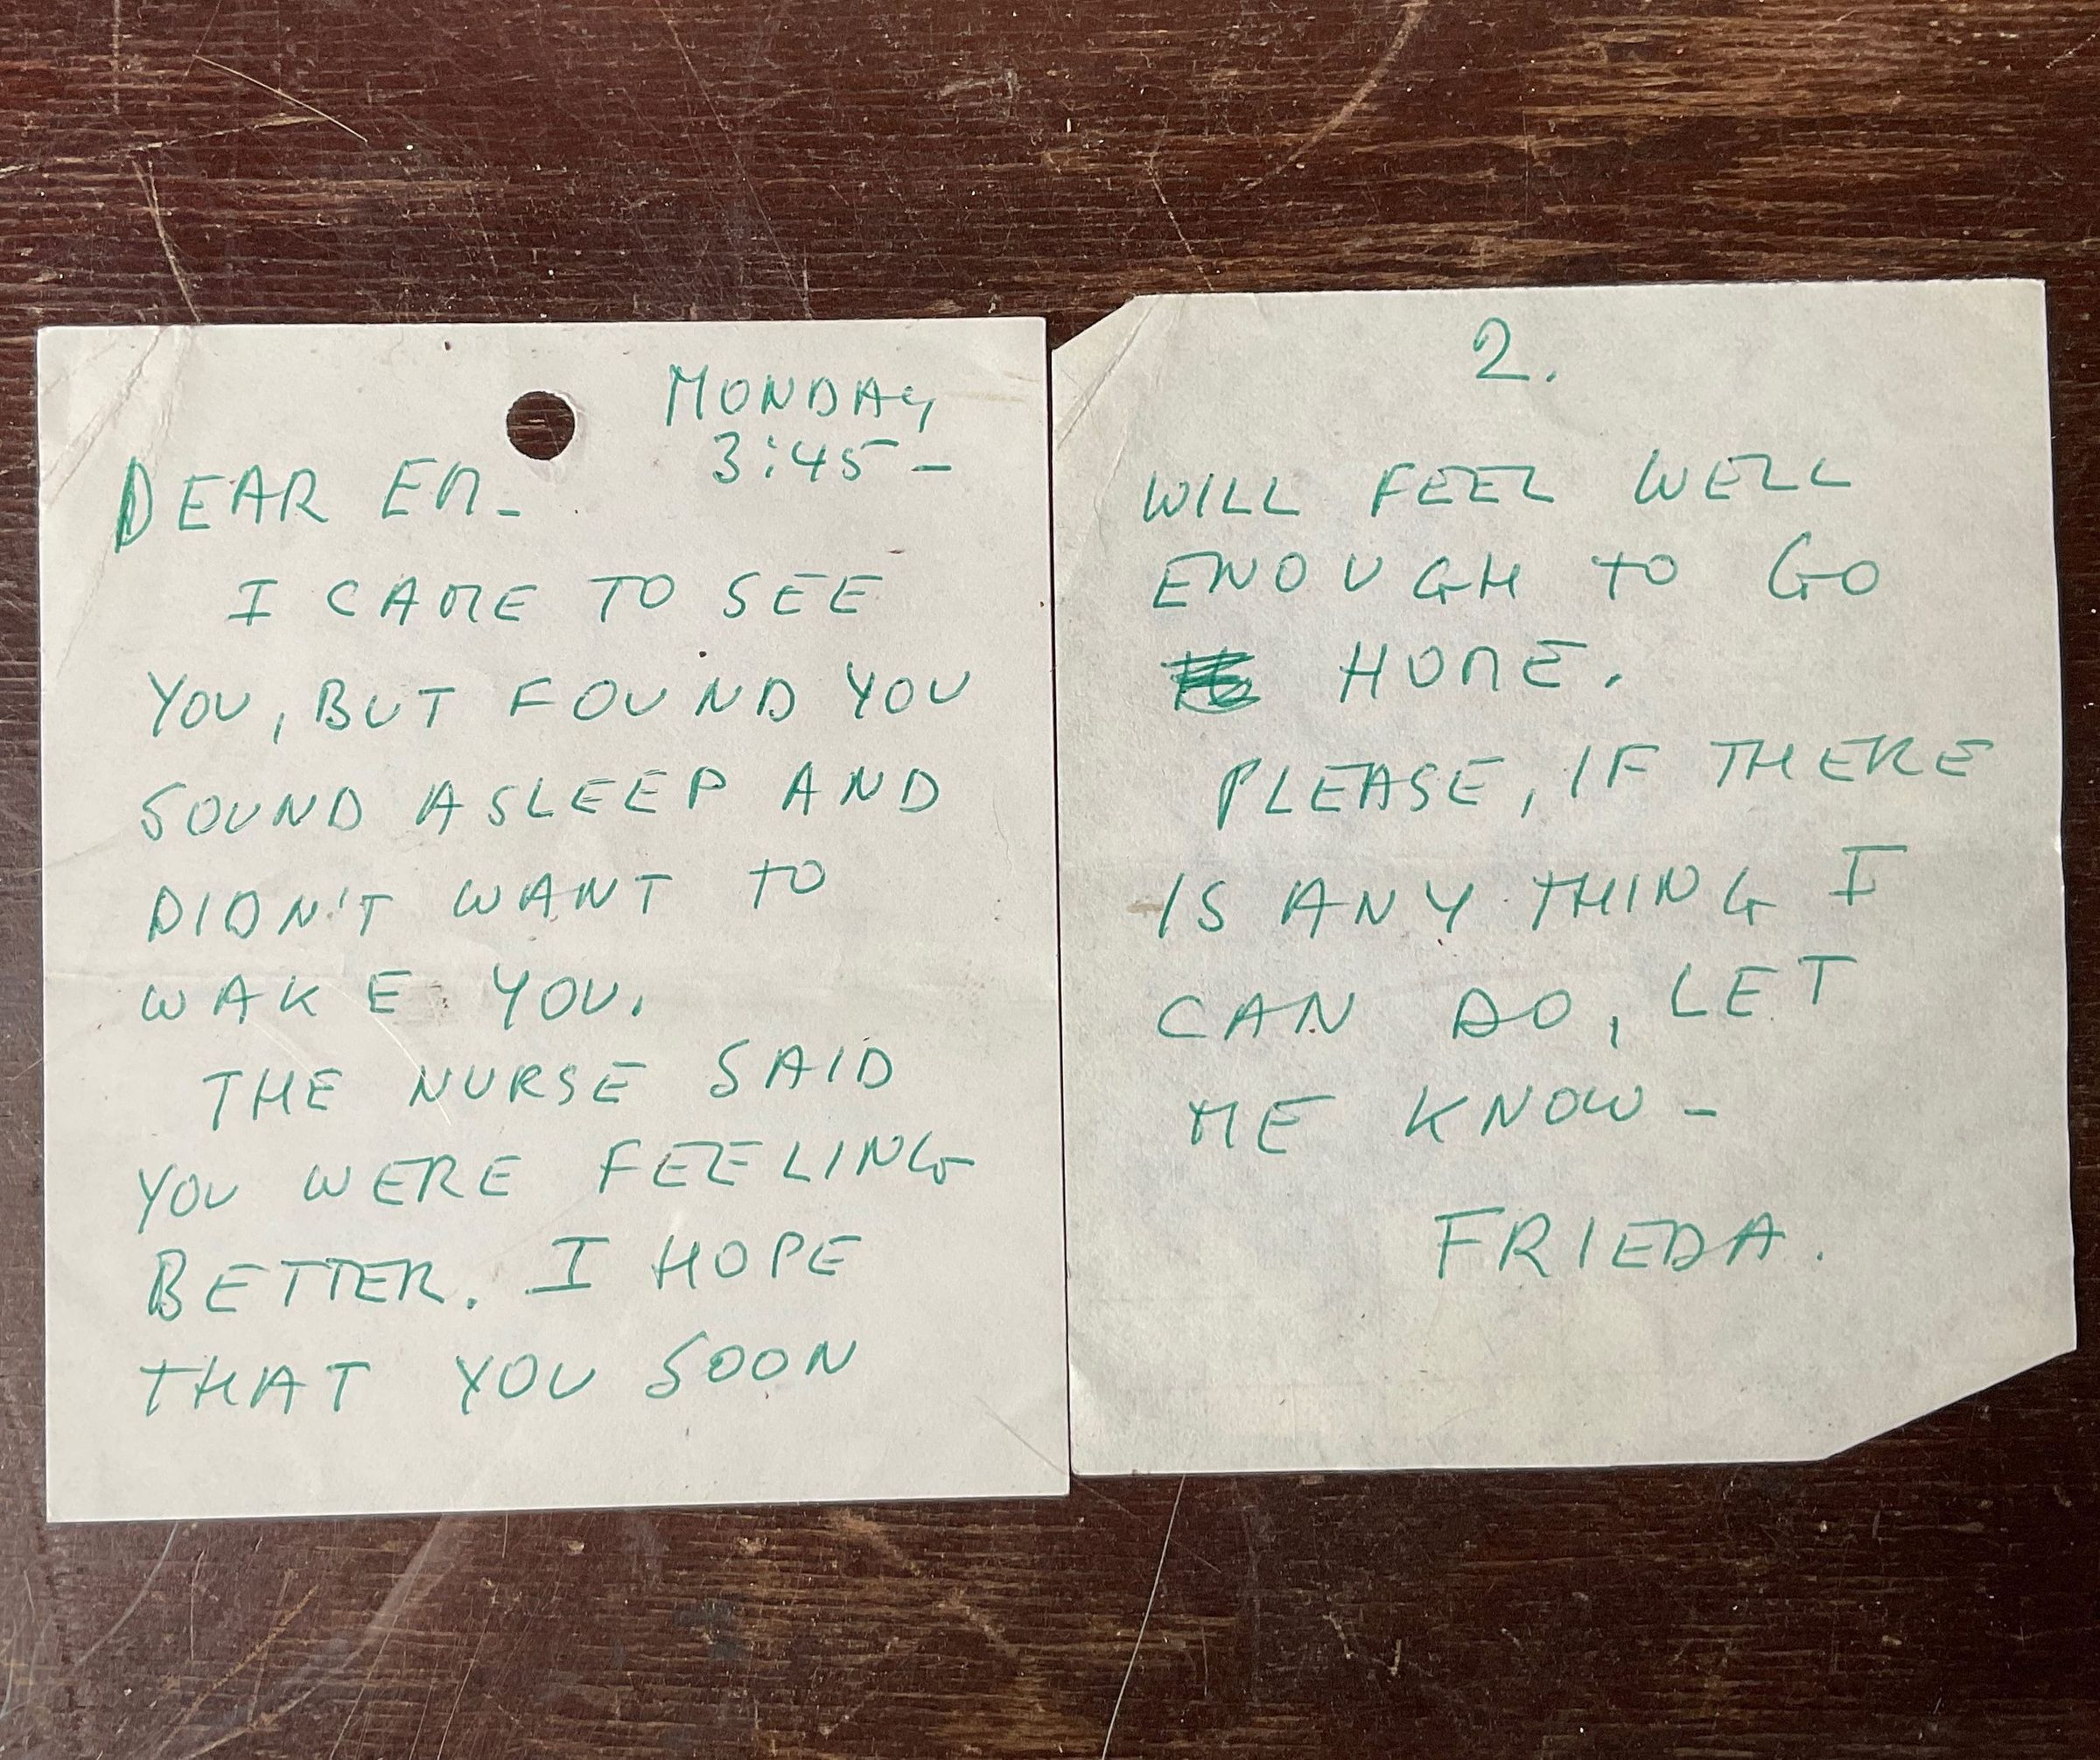 MONDAY
3:45-
DEAR EM-
I CAME TO SEE
YOU, BUT FOUND YOU
SOUND ASLEEP AND
DIDN'T WANT TO
WAKE YOU.
THE NURSE SAID
YOU WERE FEELING
BETTER. I HOPE
THAT YOU SOON
2.
WILL FEEL WELL
ENOUGH TO GO
HOME.
PLEASE, IF THERE
IS ANY THING I
CAN DO, LET
ME KNOW-
FRIEDA.